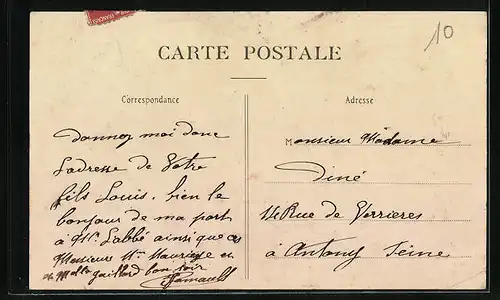 10
CARTE POSTALE
Correspondance
Adresse
Donnez moi donc
l'adresse de Votre
fils Louis. bien le
bonjour de ma part
à Mr l'abbé ainsi que
Messieurs Maurice et
et Melle Gaillard bonsoir
Monsieur Madame
Diné
14 Rue de Verrieres
à Antony Seine